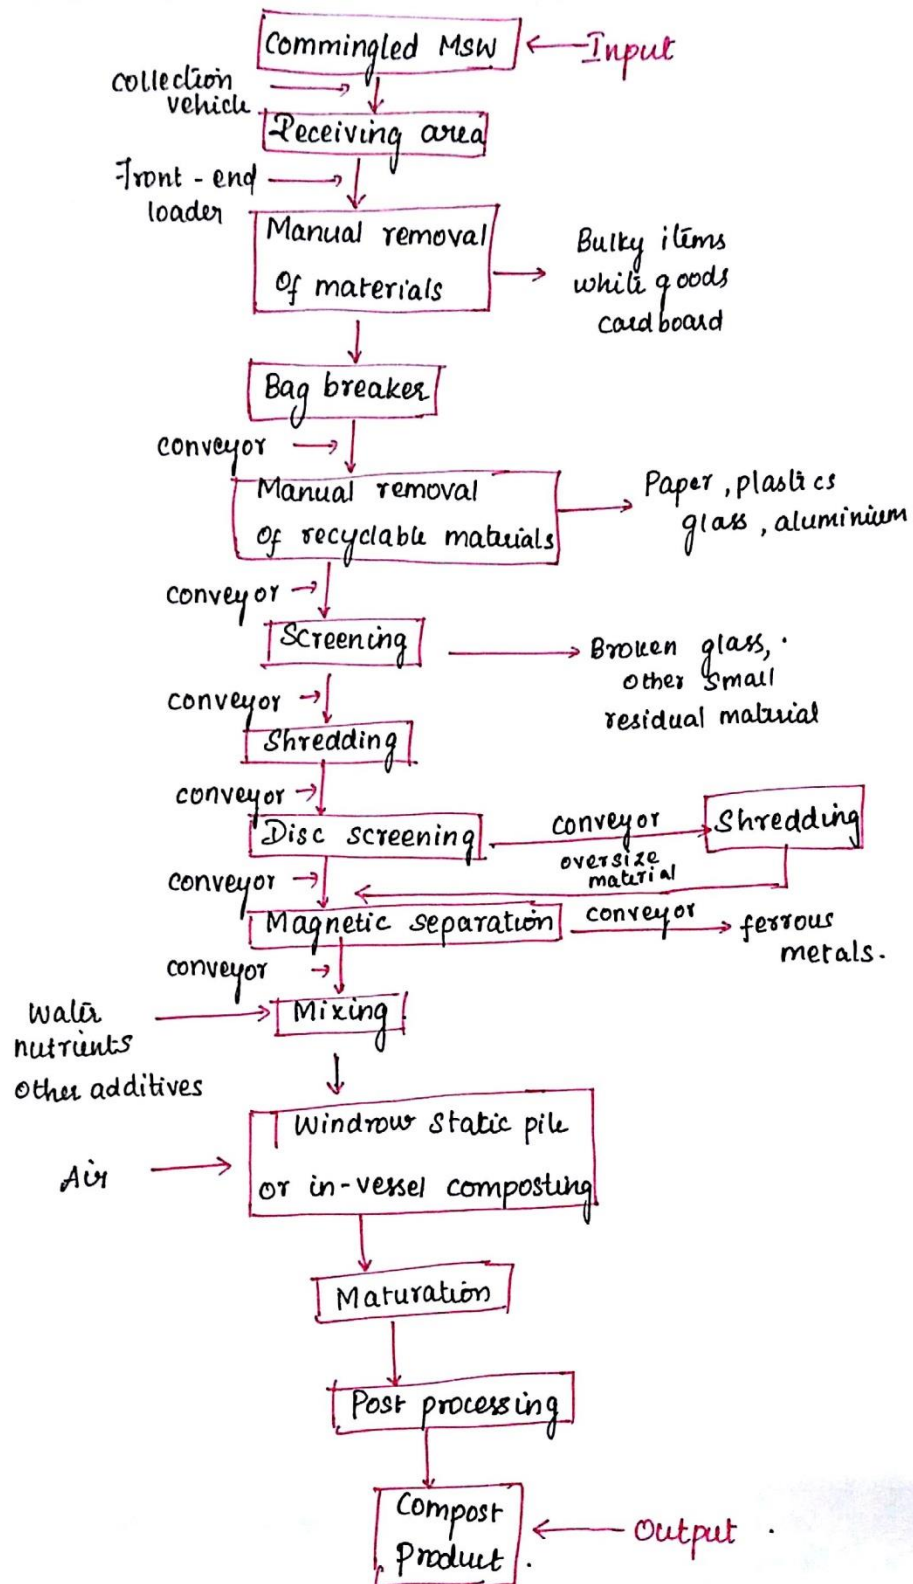 Commingled MSW
Input
collection
vehicle
Receiving area
Front-end
loader
Manual removal
Of materials
Bulky items
while goods
cardboard
Bag breaker
conveyor
Manual removal
Of recyclable materials
Paper, plastics
glass, aluminium
conveyor
Screening
Broken glass,
other small
residual material
conveyor
Shredding
conveyor
Disc screening
conveyor
oversize
material
Shredding
conveyor
Magnetic separation
conveyor
ferrous
metals.
conveyor
Mixing
Water
nutrients
other additives
Windrow static pile
or in-vessel composting
Air
Maturation
Post processing
Compost
Product.
Output